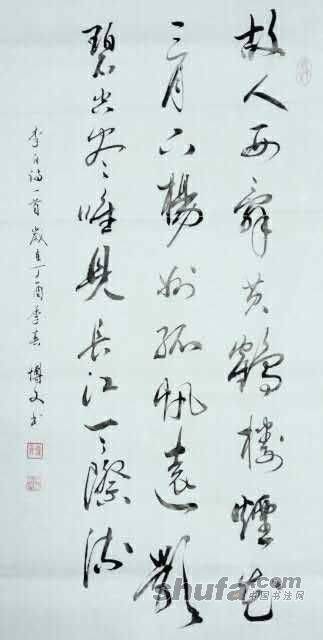 故人西辭黃鶴樓煙花
三月下楊州孤帆遠影
碧空盡唯見長江天際流
李白詩一首歲在丁酉季春 博文书
shufa.com
中国书法网